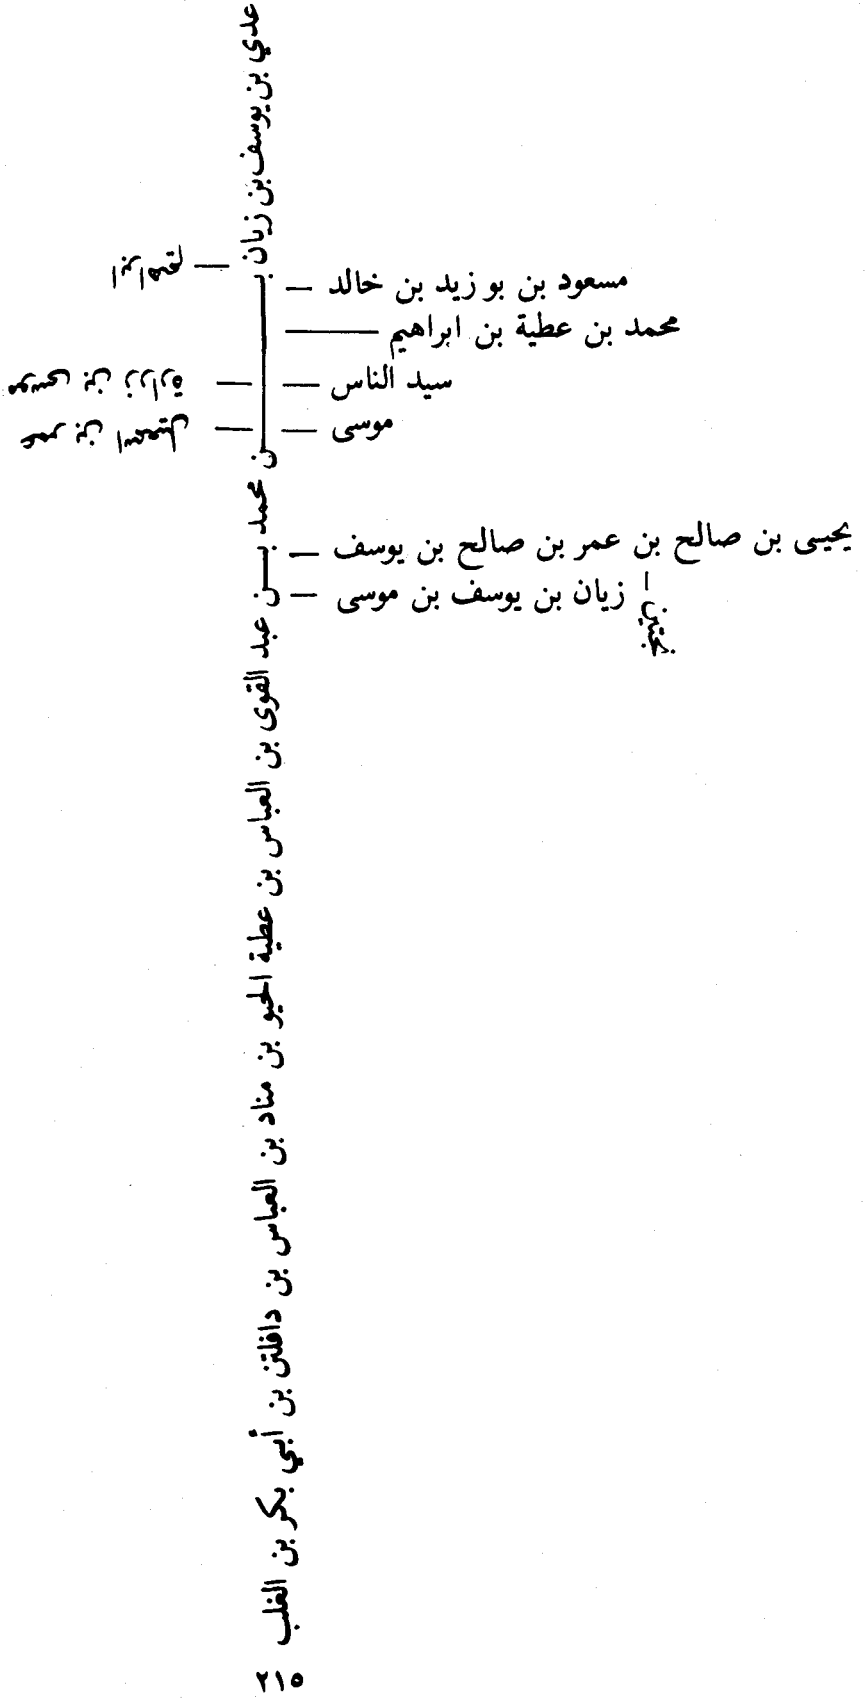 عدي بن يوسف بن زيان بن محمد بن عبد القوى بن العباس بن عطية الحيو بن مناد بن العباس بن دافلتن بن أبي بكر بن الغلب
ابراهيم
مسعود بن بو زيد بن خالد
محمد بن عطية بن ابراهيم
سيد الناس
موسى بن زرارة
موسى
عمر بن اسمعيل
يحيى بن صالح بن عمر بن صالح بن يوسف
زيان بن يوسف بن موسى
٢١٥